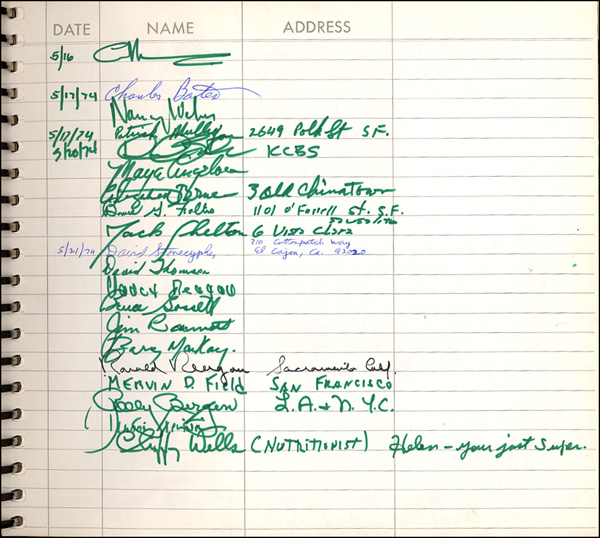 DATE NAME ADDRESS
5/16
5/17/74 Charles Bates
Nancy Weber
5/17/74 Patrick Mullins 2649 Polk St S.F.
5/20/74 KCBS
Maya Angelou
3 Old Chinatown
David G. Folks 1101 O'Farrell St. S.F.
Jack Shelton 6 Vista Clara
5/21/74 David Stonecypher 710 Cottonpatch Way
El Cajon, Ca. 92020
David Thomson
Nancy Reagan
Bruce Gossett
Jim Barnett
Barry MacKay.
Ronald Reagan Sacramento Calif.
MERVIN D. FIELD SAN FRANCISCO
Polly Bergen L.A. + N.Y.C.
Wells (NUTRITIONIST) Helen - your just super.